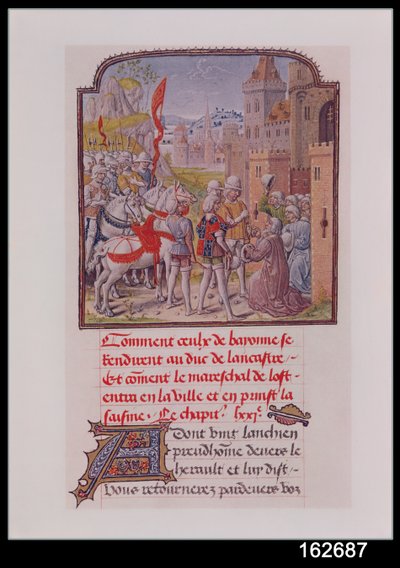 Comment ceulx de baronne se
rendirent au duc de lancastre /
Et cōment le mareschal de lost
entra en la ville et en prinst la
saisine. Le chapitr̄ lxxiᵉ.
Adont vint lanchien
preudhōme devers le
herault et luy dist /
Vous retournerez pardevers voz
162687